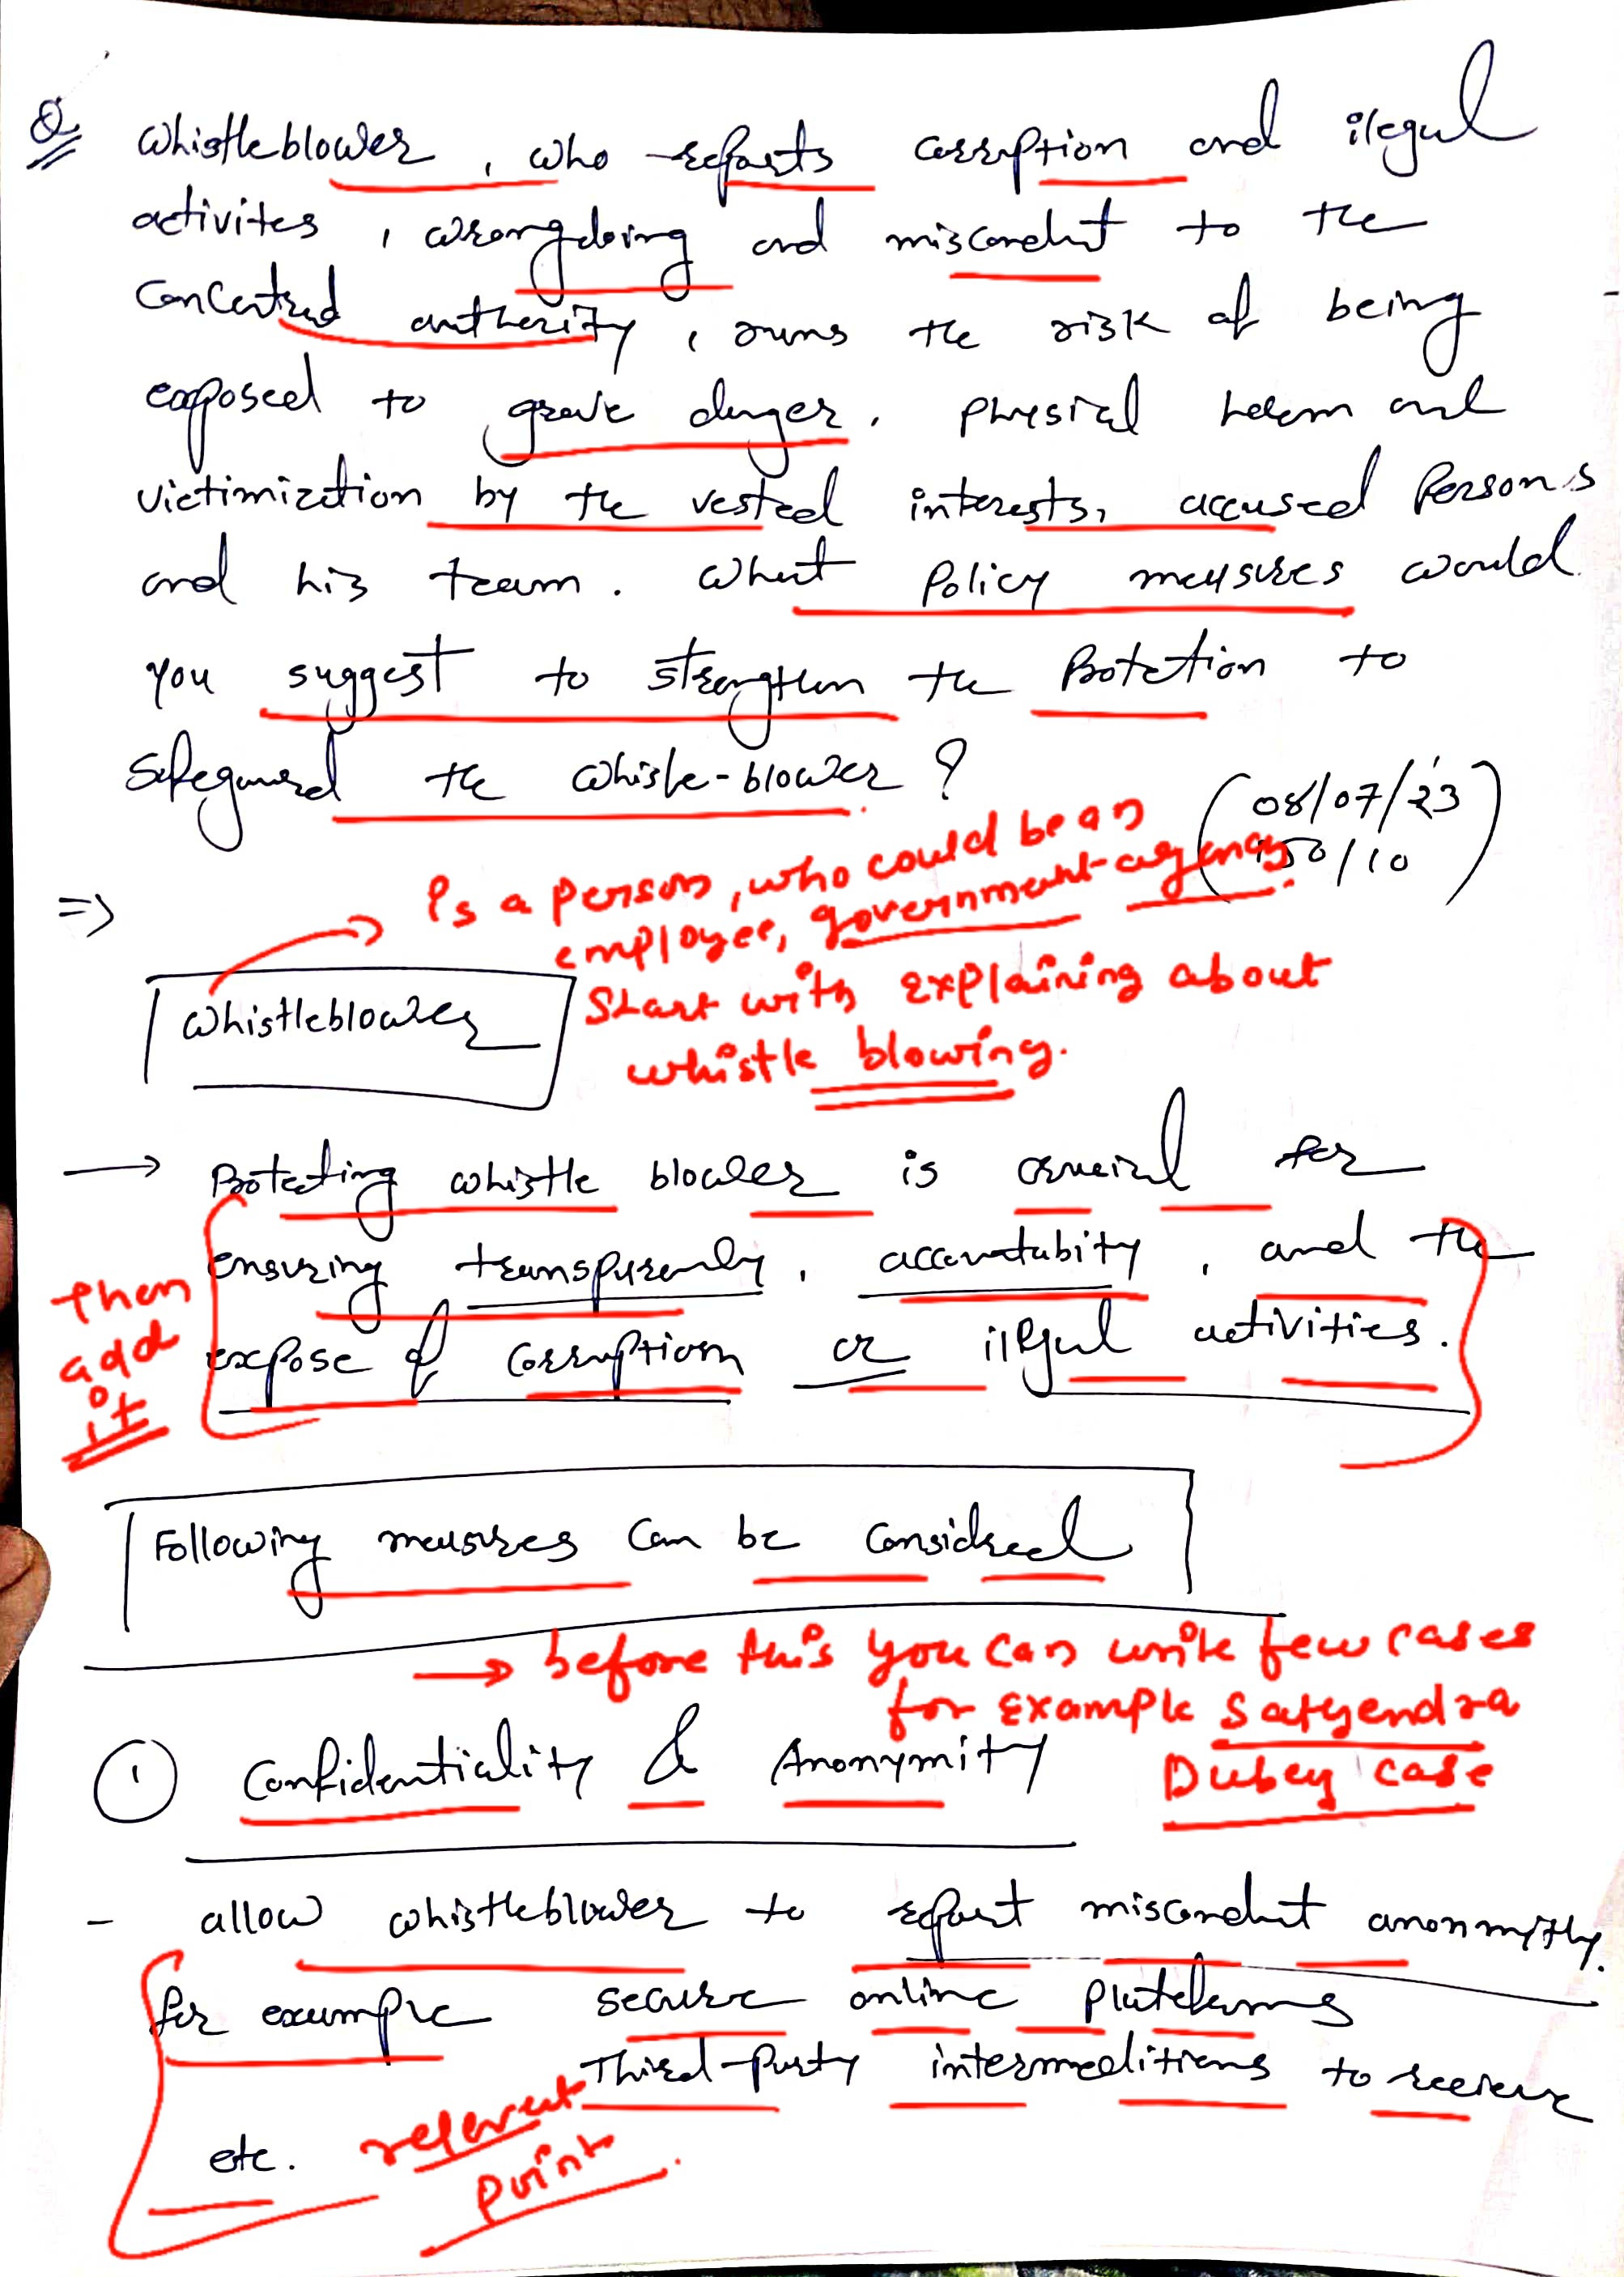 Q. Whistleblower, who reports corruption and ilegul
activites, wrongdoing and misconduct to the
Concerned authority, runs the risk of being
exposed to grave danger. Physical harm and
victimization by the vested interests, accused Persons
and his team. What Policy measures would
you suggest to strengthen the Protetion to
Safeguard the whistle-blower?
(08/07/23
150/10)
⇒
is a person, who could be an
employee, government agency
Whistleblower
Start with explaining about
whistle blowing.
→ Protecting whistle blower is crucial for
ensuring transparency, accountability, and the
expose of corruption or illegal activities.
then
add
it
Following measures can be considered
→ before this you can write few cases
for example Satyendra
Dubey case
① Confidentiality & Anonymity
- allow whistleblower to report misconduct anonmytly.
for example secure online plateforms
Third-Party intermeditions to receive
etc.
relevent
point.